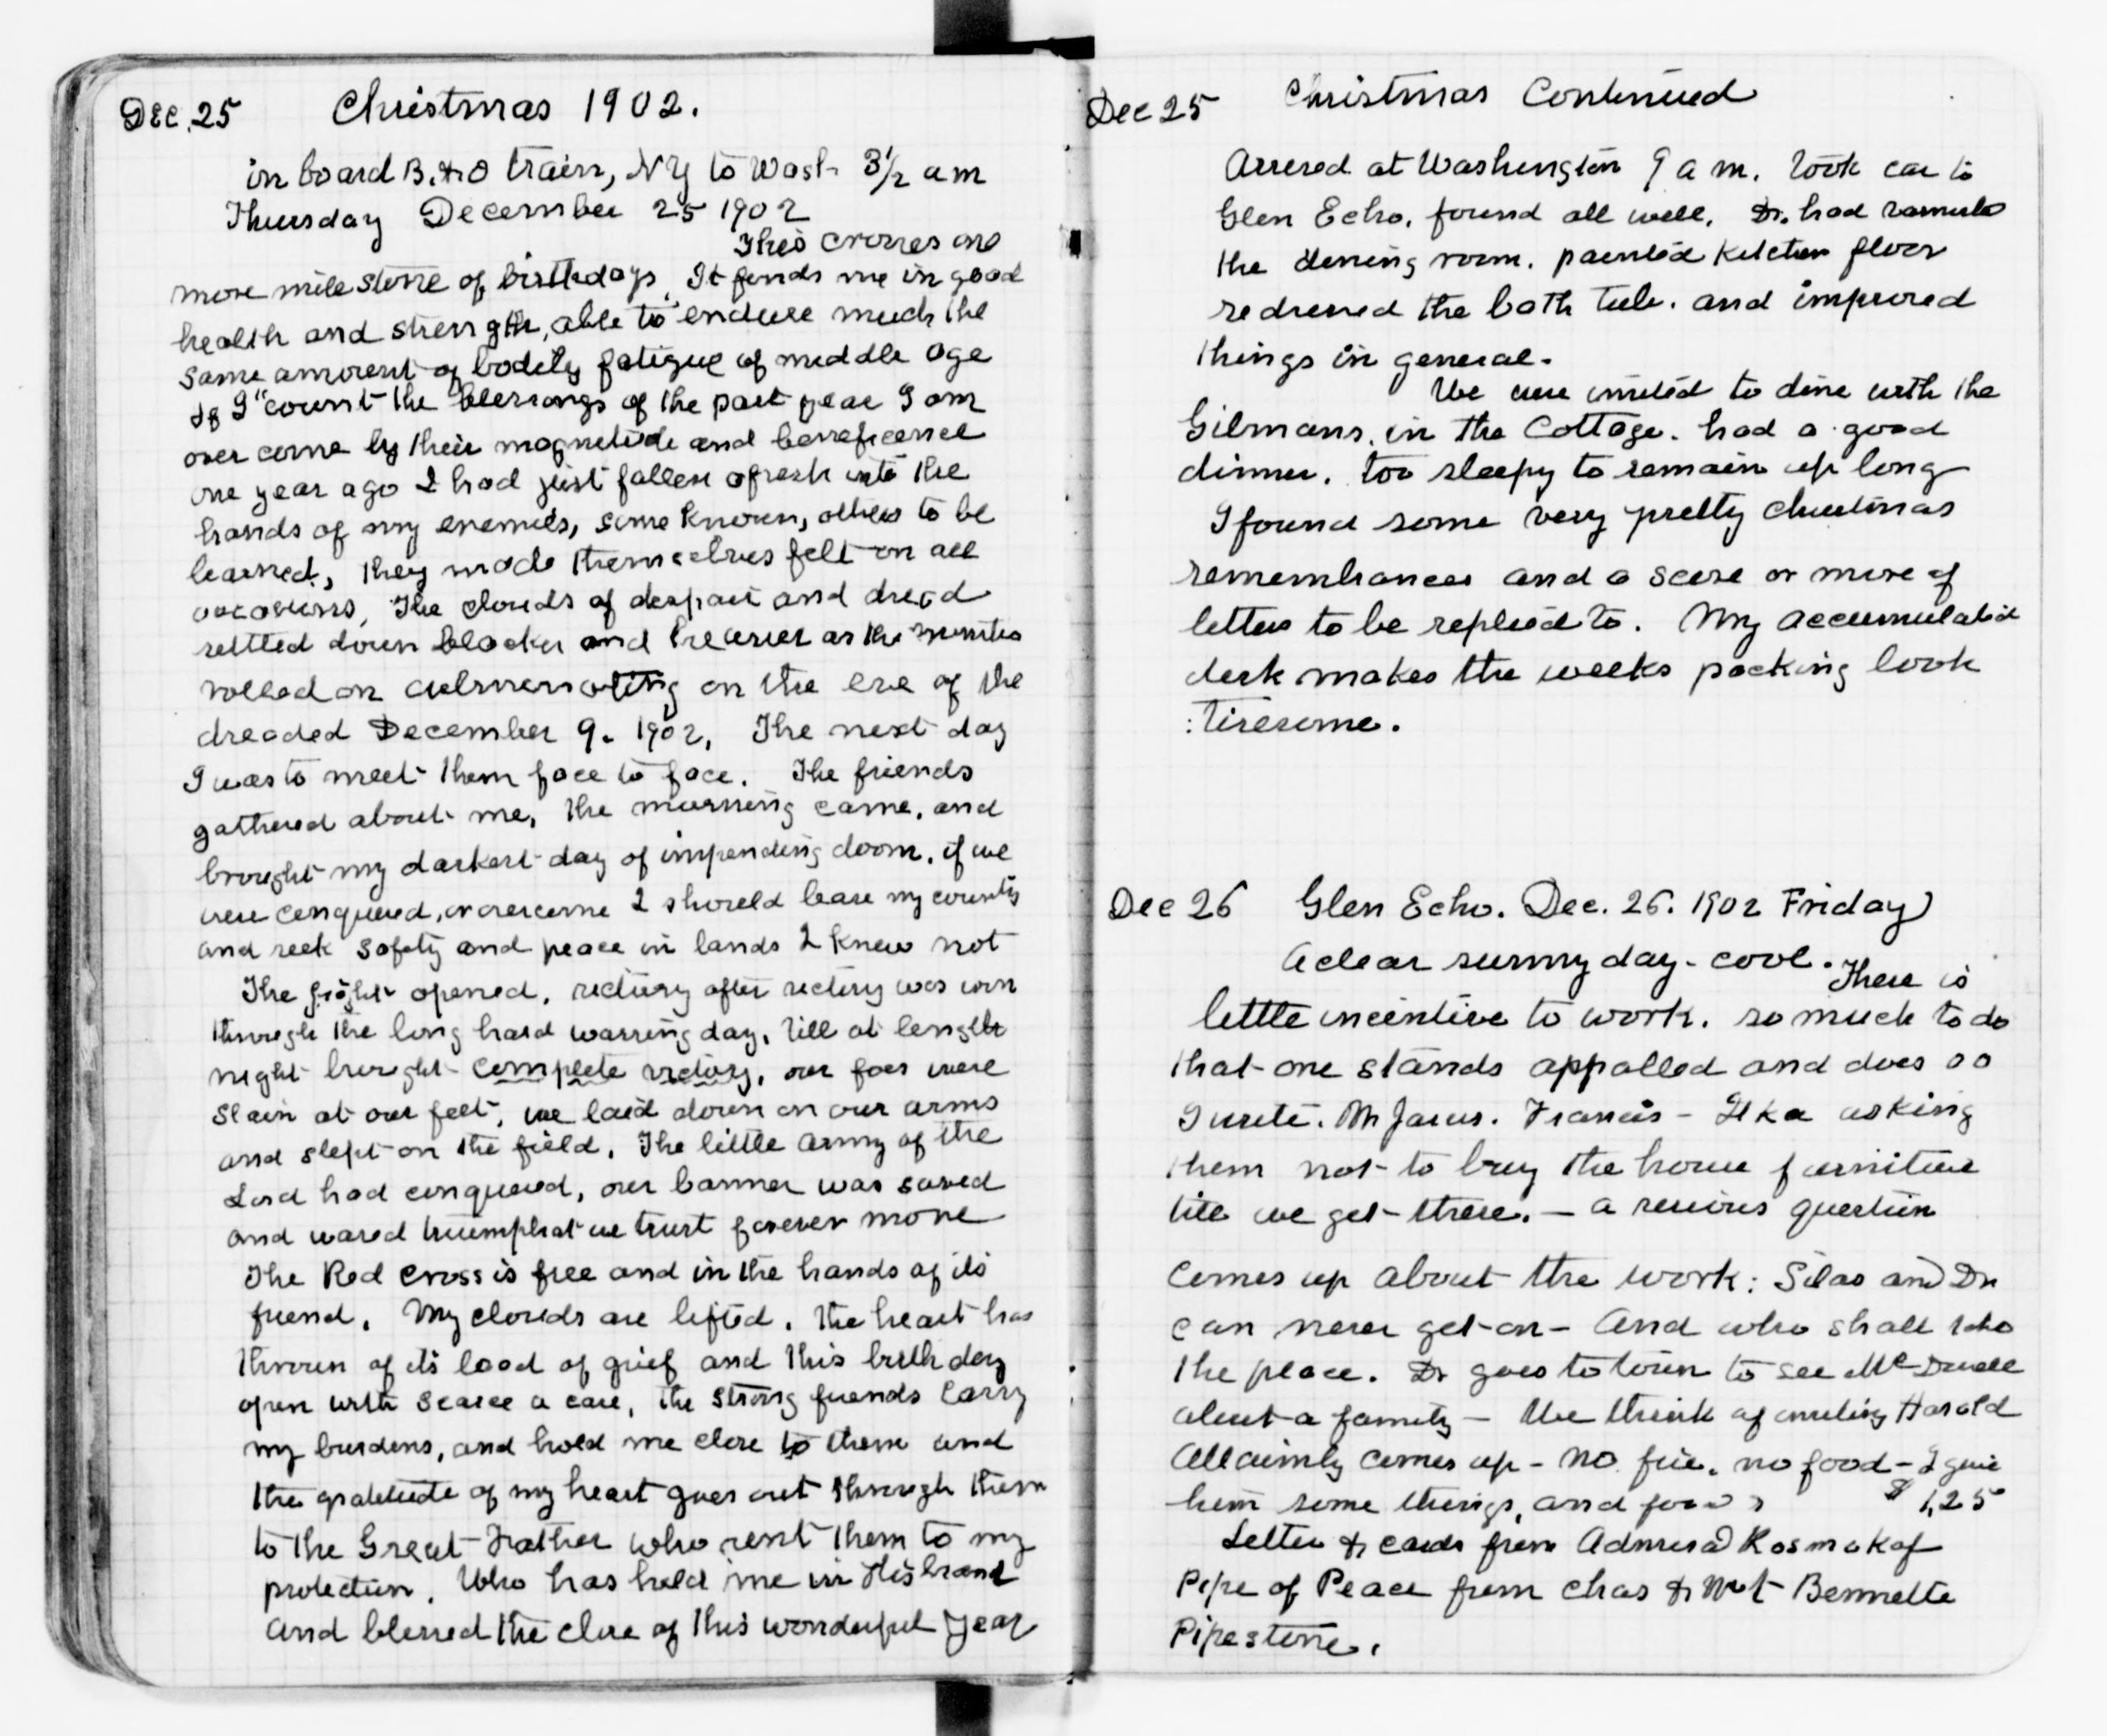 Dec. 25 Christmas 1902.
in board B. & O train, N Y to Wash 3 1/2 a m
Thursday December 25 1902
This crosses one
more mile stone of birthdays. It finds me in good
health and strength, able to endure much the
same amount of bodily fatigue of middle age
If I "count the blessings of the past year I am
over come by their magnetude and beneficence
one year ago I had just fallen afresh into the
hands of my enemies, some known, others to be
learned, they made themselves felt on all
occasions, The clouds of despair and dread
settled down blacker and heavier as the months
rolled on culmenating on the eve of the
dreaded December 9. 1902, The next day
I was to meet them face to face. The friends
gathered about me, the morning came, and
brought my darkest day of impending doom. if we
were conquered, or overcome I should leave my country
and seek safety and peace in lands I knew not
The fight opened, victory after victory was won
through the long hard warring day, till at length
night brought complete victory, our foes were
slain at our feet, we laid down on our arms
and slept on the field. The little army of the
Lord had conquered, our banner was saved
and waved triumphat we trust forever more
The Red Cross is free and in the hands of its
friend. My clouds are lifted. the heart has
thrown of its load of grief and this birth day
open with scarce a care, the strong friends carry
my burdens, and hold me close to them and
the gratitude of my heart goes out through them
to the Great Father who sent them to my
protection. Who has held me in His hand
and blessed the close of this wonderful year
Dec 25 Christmas Continued
Arrived at Washington 9 a m. took car to
Glen Echo. found all well. Dr. had
the dining room. painted kitchen floor
redressed the bath tub. and improved
things in general.
We were invited to dine with the
Gilmans. in the Cottage. had a good
dinner. too sleepy to remain up long
I found some very pretty christmas
remembrances and a score or more of
letters to be replied to. My accumulated
desk makes the weeks packing look
tiresome.
Dec 26 Glen Echo. Dec. 26. 1902 Friday
A clear sunny day - cool.
There is
little incentive to work. so much to do
that one stands appalled and does 00
I write. Francis - Ilka asking
them not to buy the house furniture
till we get there. - a serious question
comes up about the work: Silas and Dr
can never get on - And who shall take
the place. Dr goes to town to see
about a family - We think of inviting Harold
comes up - no fire. no food - I give
him some things, and food $1,25
Letter & cards from Admiral Kosmakof
Pipe of Peace from Chas & Bennette
Pipestone.